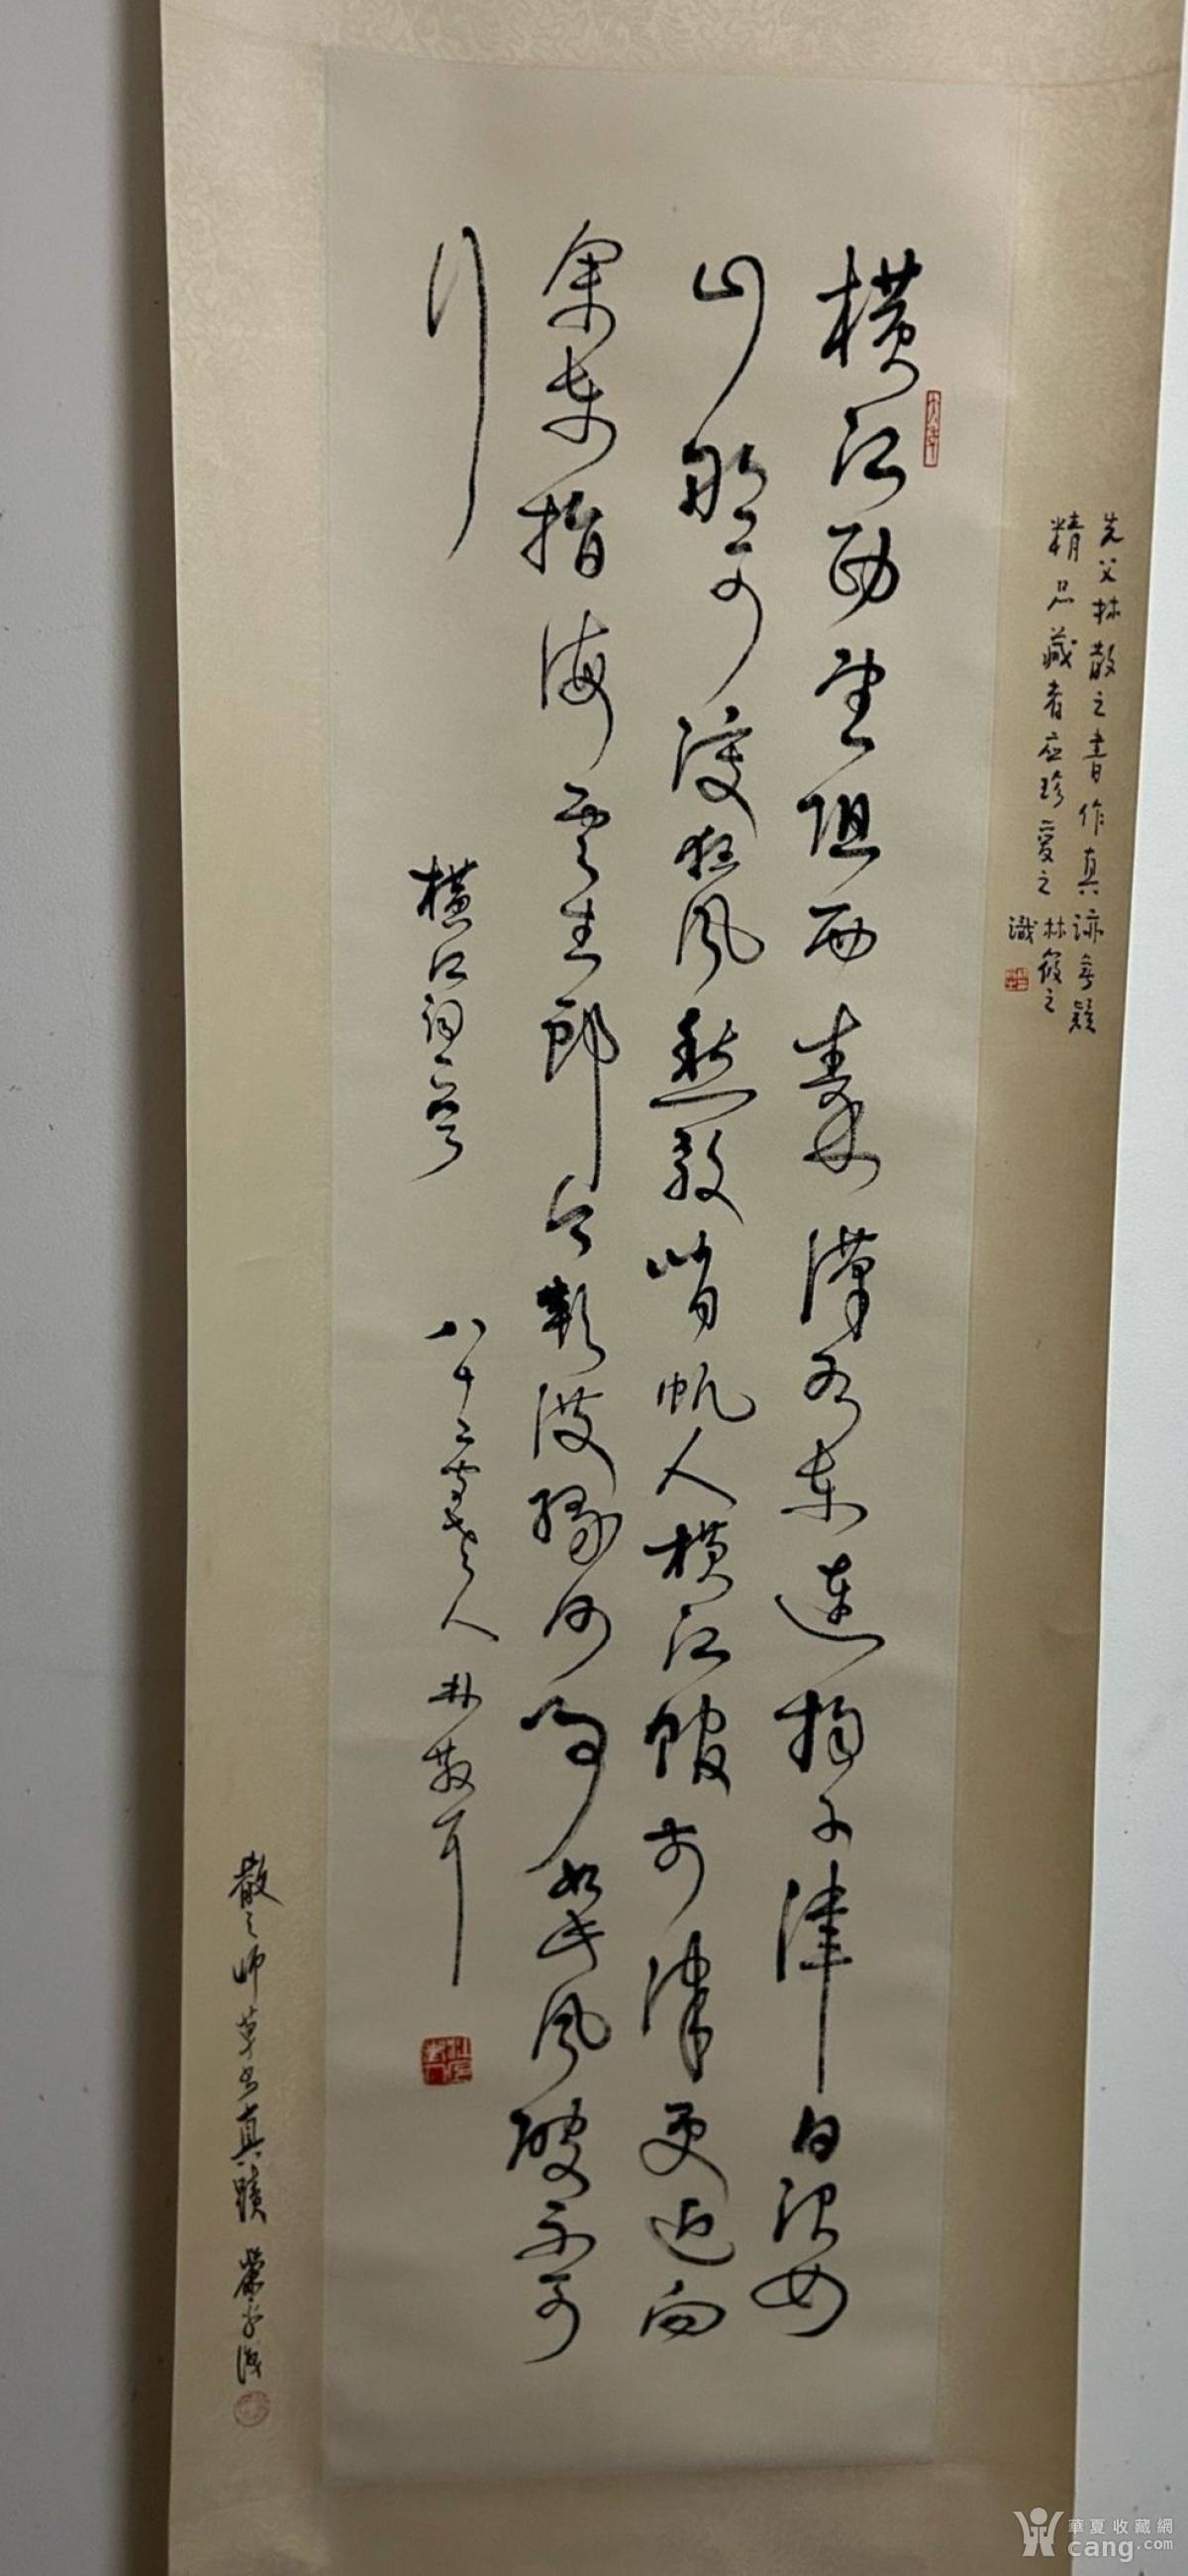 先父林散之書作真迹無疑
精品藏者应珍爱之
林筱之
識
横江西望阻西秦漢水东連揚子津白浪如
山那可渡狂风愁殺峭帆人横江館前津吏迎向
余东指海雲生郎今欲渡缘何事如此风波不可
行
横江词二首
八十二聋老人林散耳
散之师草书真蹟
華夏收藏網
cang.com